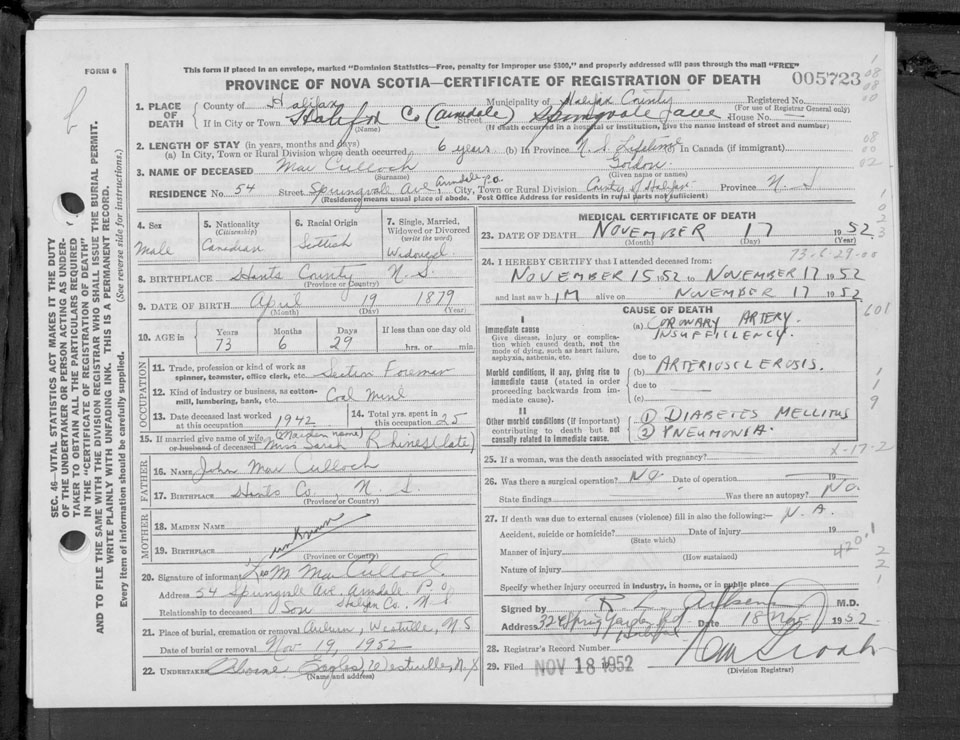 FORM 6
This form if placed in an envelope, marked "Dominion Statistics—Free, penalty for improper use $300," and properly addressed will pass through the mail "FREE"
PROVINCE OF NOVA SCOTIA—CERTIFICATE OF REGISTRATION OF DEATH 005723
SEC. 46—VITAL STATISTICS ACT MAKES IT THE DUTY
OF THE UNDERTAKER OR PERSON ACTING AS UNDER-
TAKER TO OBTAIN ALL THE PARTICULARS REQUIRED
IN THE "CERTIFICATE OF REGISTRATION OF DEATH"
AND TO FILE THE SAME WITH THE DIVISION REGISTRAR WHO SHALL ISSUE THE BURIAL PERMIT.
WRITE PLAINLY WITH UNFADING INK. THIS IS A PERMANENT RECORD.
Every item of information should be carefully supplied. (See reverse side for instructions.)
1. PLACE OF DEATH
County of Halifax Municipality of Halifax County Registered No.
(For use of Registrar General only)
If in City or Town Halifax Co (Armdale) Street Springvale Ave House No. —
(Name) (If death occurred in a hospital or institution, give the name instead of street and number)
2. LENGTH OF STAY (in years, months and days)
(a) In City, Town or Rural Division where death occurred 6 years (b) In Province N. S. Lifetime In Canada (if immigrant)
3. NAME OF DECEASED Mac Culloch Gordon
(Surname) (Given name or names)
RESIDENCE No. 54 Street Springvale Ave Armdale P.O. City, Town or Rural Division County of Halifax Province N. S
(Residence means usual place of abode. Post Office Address for residents in rural parts not sufficient)
4. Sex
Male
5. Nationality
(Citizenship)
Canadian
6. Racial Origin
Scottish
7. Single, Married,
Widowed or Divorced
(write the word)
Widowed
8. BIRTHPLACE Hants County N. S.
(Province or Country)
9. DATE OF BIRTH April 19 1879
(Month) (Day) (Year)
10. AGE in
Years Months Days If less than one day old
73 6 29 hrs. or min.
OCCUPATION
11. Trade, profession or kind of work as
spinner, teamster, office clerk, etc. Section Foreman
12. Kind of industry or business, as cotton-
mill, lumbering, bank, etc. Coal Mine
13. Date deceased last worked
at this occupation 1942
14. Total yrs. spent in
this occupation 25
15. If married give name of wife (Maiden name)
or husband of deceased Miss Sarah Rhines (late)
FATHER
16. NAME John Mac Culloch
17. BIRTHPLACE Hants Co. N. S.
(Province or Country)
MOTHER
18. MAIDEN NAME
19. BIRTHPLACE unknown
(Province or Country)
20. Signature of informant Leo M Mac Culloch
Address 54 Springvale Ave. Armdale P. O.
Halifax Co. N. S
Relationship to deceased Son
21. Place of burial, cremation or removal Auburn, Westville, N S
Date of burial or removal Nov 19, 1952
22. UNDERTAKER Eagles, Westville, N. S
(Name and address)
MEDICAL CERTIFICATE OF DEATH
23. DATE OF DEATH NOVEMBER 17 1952
(Month) (Day) (Year)
73-6-29-00
24. I HEREBY CERTIFY that I attended deceased from:
NOVEMBER 15, 52 to NOVEMBER 17 1952
and last saw h IM alive on NOVEMBER 17 1952
CAUSE OF DEATH
I
Immediate cause
Give disease, injury or complica-
tion which caused death, not the
mode of dying, such as heart failure,
asphyxia, asthenia, etc.
(a) CORONARY ARTERY
INSUFFICIENCY.
due to
Morbid conditions, if any, giving rise to
immediate cause (stated in order
proceeding backwards from im-
mediate cause).
(b) ARTERIOSCLEROSIS.
due to —
(c)
II
Other morbid conditions (if important)
contributing to death but not
causally related to immediate cause.
① DIABETES MELLITUS
② PNEUMONIA.
25. If a woman, was the death associated with pregnancy?
26. Was there a surgical operation? NO. Date of operation 19
State findings Was there an autopsy? No.
27. If death was due to external causes (violence) fill in also the following:— N. A.
Accident, suicide or homicide? Date of injury 19
(State which)
Manner of injury
(How sustained)
Nature of injury
Specify whether injury occurred in industry, in home, or in public place
Signed by R. L. Aitken M.D.
Address 324 Spring Garden Rd. Halifax Date 18 Nov 1952.
28. Registrar's Record Number
29. Filed NOV 18 1952
(Division Registrar)